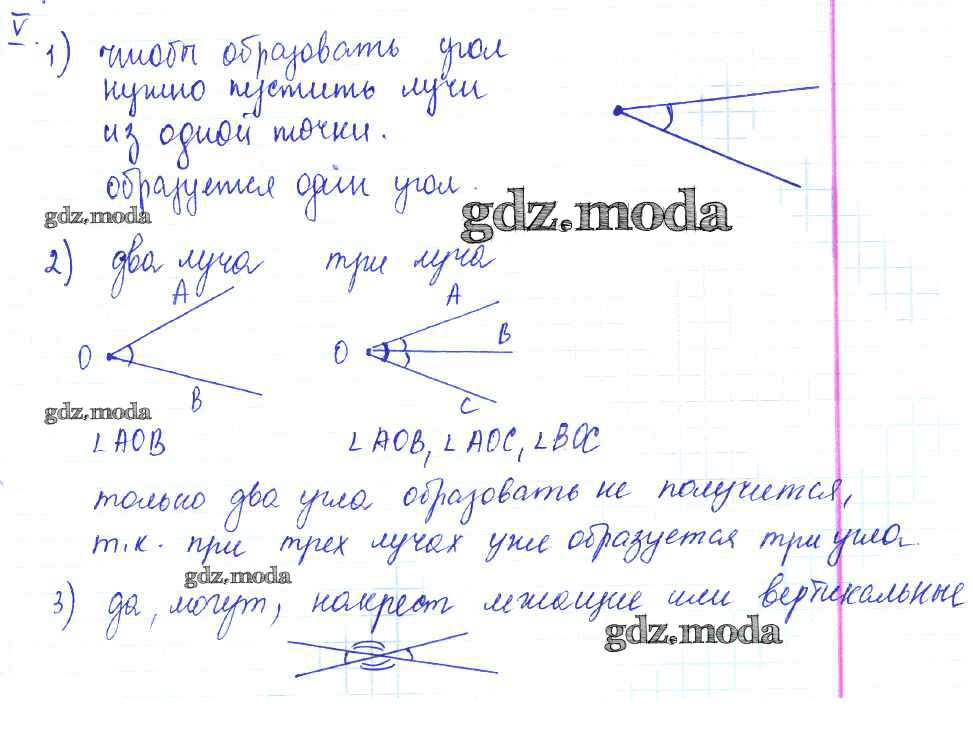 V.
1) чтобы образовать угол
нужно пустить лучи
из одной точки.
образуется один угол.
gdz.moda
gdz.moda
2) два луча три луча
A A
O O B
B C
gdz.moda
∠AOB ∠AOB, ∠AOC, ∠BOC
только два угла образовать не получится,
т.к. при трех лучах уже образуется три угла.
gdz.moda
3) да, могут, накрест лежащие или вертикальные
gdz.moda